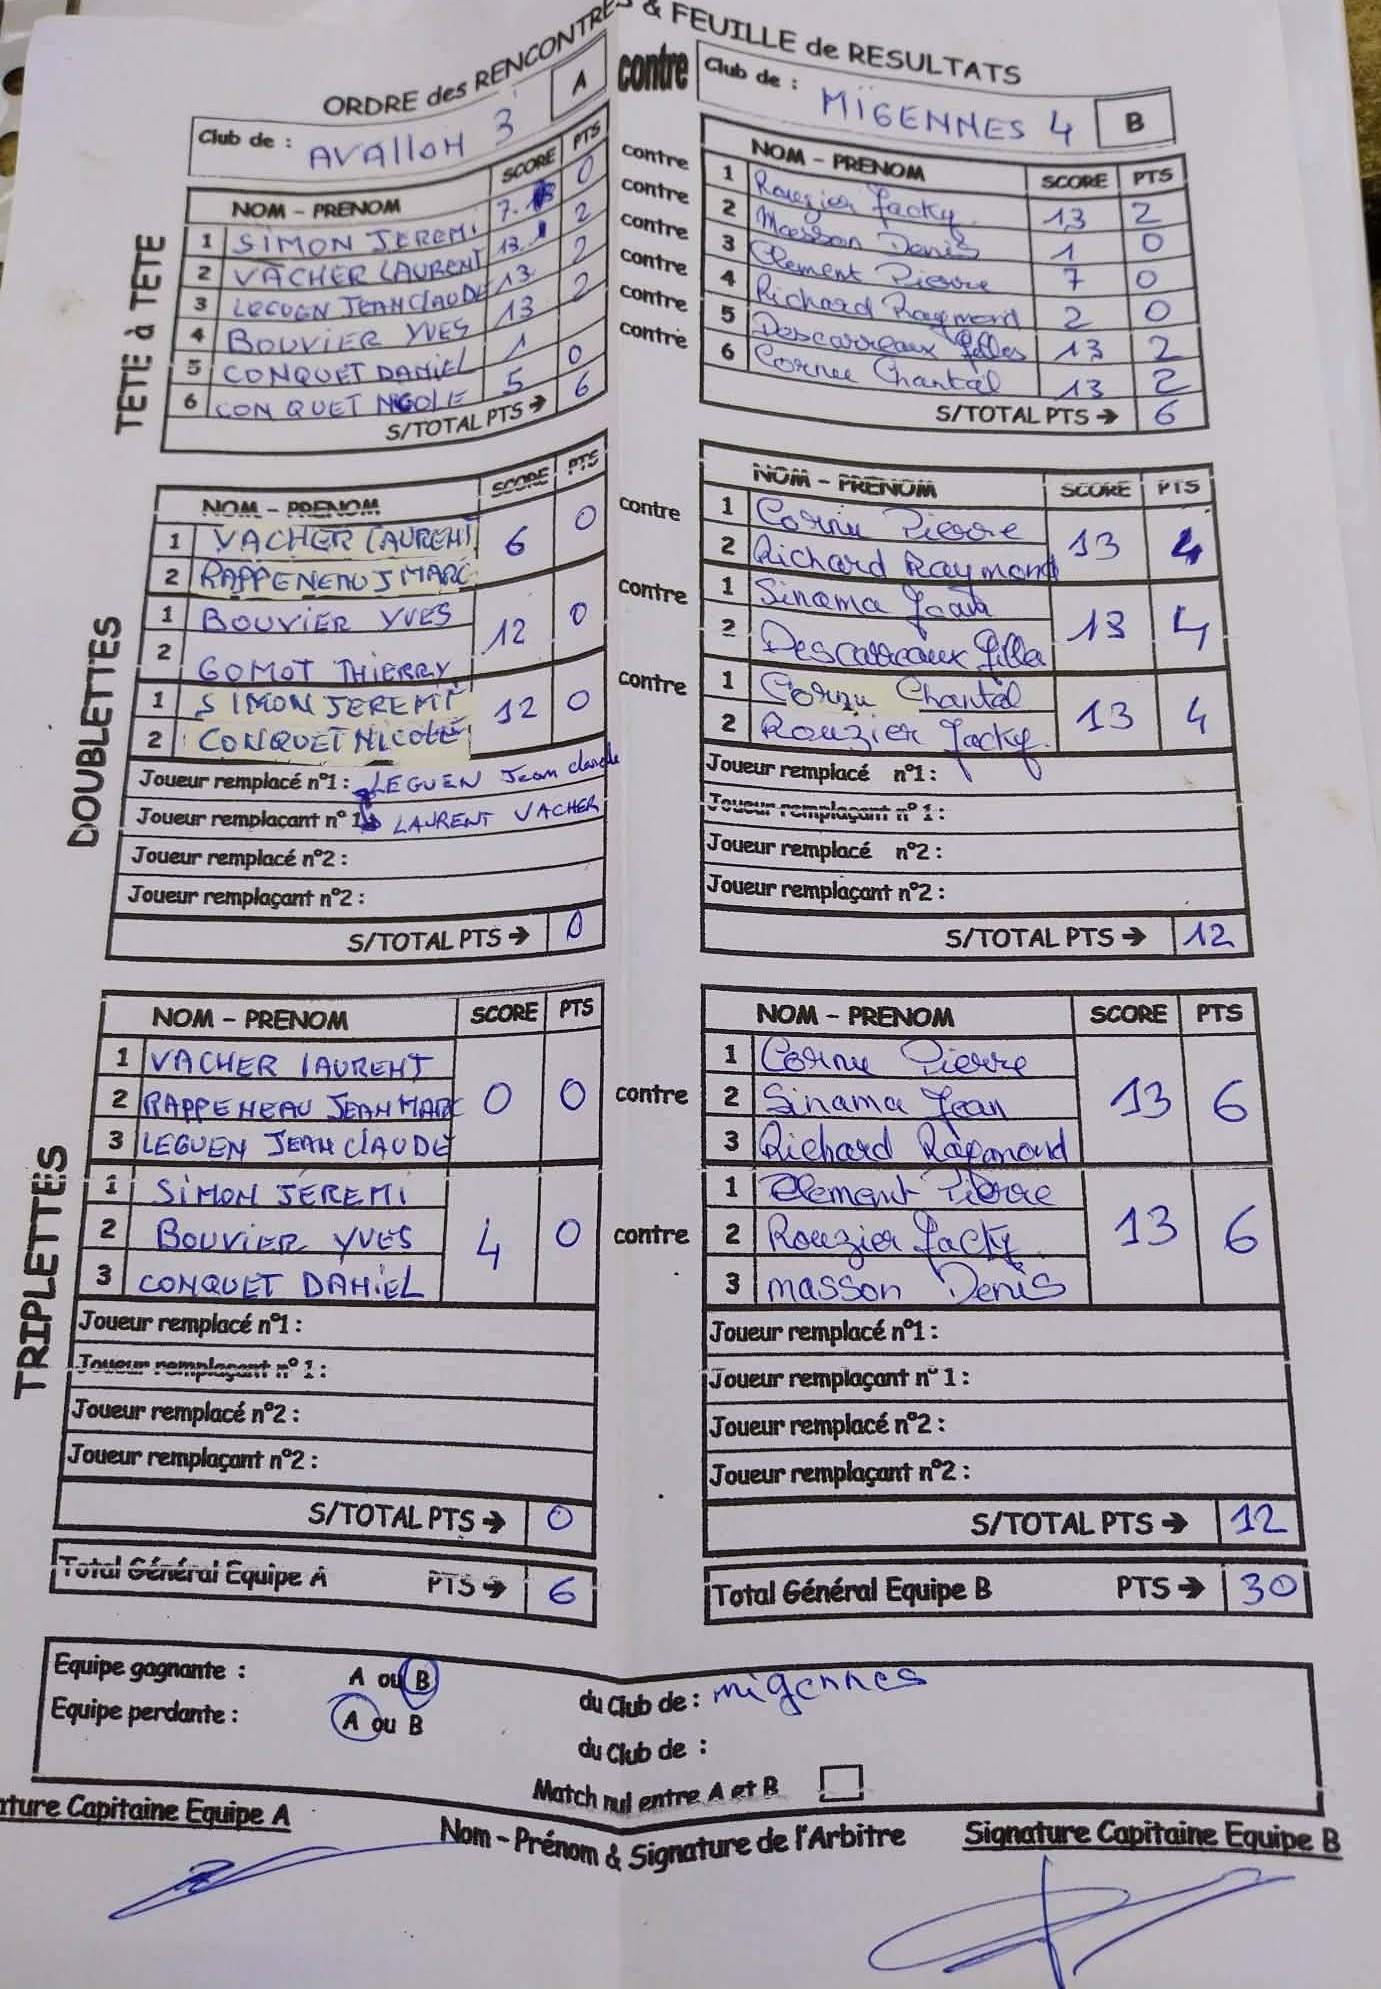 ORDRE des RENCONTRES & FEUILLE de RESULTATS
Club de : AVALLON 3 A contre Club de : MIGENNES 4 B
TETE à TETE
NOM - PRENOM SCORE PTS contre NOM - PRENOM SCORE PTS
1 SIMON JEREMI 7 0 contre 1 Rouzier Jacky 13 2
2 VACHER LAURENT 13 2 contre 2 Masson Denis 1 0
3 LEGUEN JEAN CLAUDE 13 2 contre 3 Clement Pierre 7 0
4 BOUVIER YVES 13 2 contre 4 Richard Raymond 2 0
5 CONQUET DANIEL 1 0 contre 5 Descarreaux Gilles 13 2
6 CONQUET NICOLE 5 contre 6 Cornu Chantal 13 2
S/TOTAL PTS → 6 S/TOTAL PTS → 6
DOUBLETTES
NOM - PRENOM SCORE PTS NOM - PRENOM SCORE PTS
1 VACHER LAURENT 6 0 contre 1 Cornu Pierre 13 4
2 RAPPENEAU J MARC 2 Richard Raymond
1 BOUVIER YVES 12 0 contre 1 Sinama Jean 13 4
2 GOMOT THIERRY 2 Descarreaux Gilles
1 SIMON JEREMI 12 0 contre 1 Cornu Chantal 13 4
2 CONQUET NICOLE 2 Rouzier Jacky
Joueur remplacé n°1 : LEGUEN Jean claude Joueur remplacé n°1 :
Joueur remplaçant n° 1 LAURENT VACHER Joueur remplaçant n° 1 :
Joueur remplacé n°2 : Joueur remplacé n°2 :
Joueur remplaçant n°2 : Joueur remplaçant n°2 :
S/TOTAL PTS → 0 S/TOTAL PTS → 12
TRIPLETTES
NOM - PRENOM SCORE PTS NOM - PRENOM SCORE PTS
1 VACHER LAURENT 1 Cornu Pierre
2 RAPPENEAU JEAN MARC 0 0 contre 2 Sinama Jean 13 6
3 LEGUEN JEAN CLAUDE 3 Richard Raymond
1 SIMON JEREMI 1 Clement Pierre
2 BOUVIER YVES 4 0 contre 2 Rouzier Jacky 13 6
3 CONQUET DANIEL 3 masson Denis
Joueur remplacé n°1 : Joueur remplacé n°1 :
Joueur remplaçant n° 1 : Joueur remplaçant n° 1 :
Joueur remplacé n°2 : Joueur remplacé n°2 :
Joueur remplaçant n°2 : Joueur remplaçant n°2 :
S/TOTAL PTS → 0 S/TOTAL PTS → 12
Total Général Equipe A PTS → 6 Total Général Equipe B PTS → 30
Equipe gagnante : A ou B du Club de : migennes
Equipe perdante : A ou B du Club de :
Match nul entre A et B
ature Capitaine Equipe A Nom - Prénom & Signature de l'Arbitre Signature Capitaine Equipe B